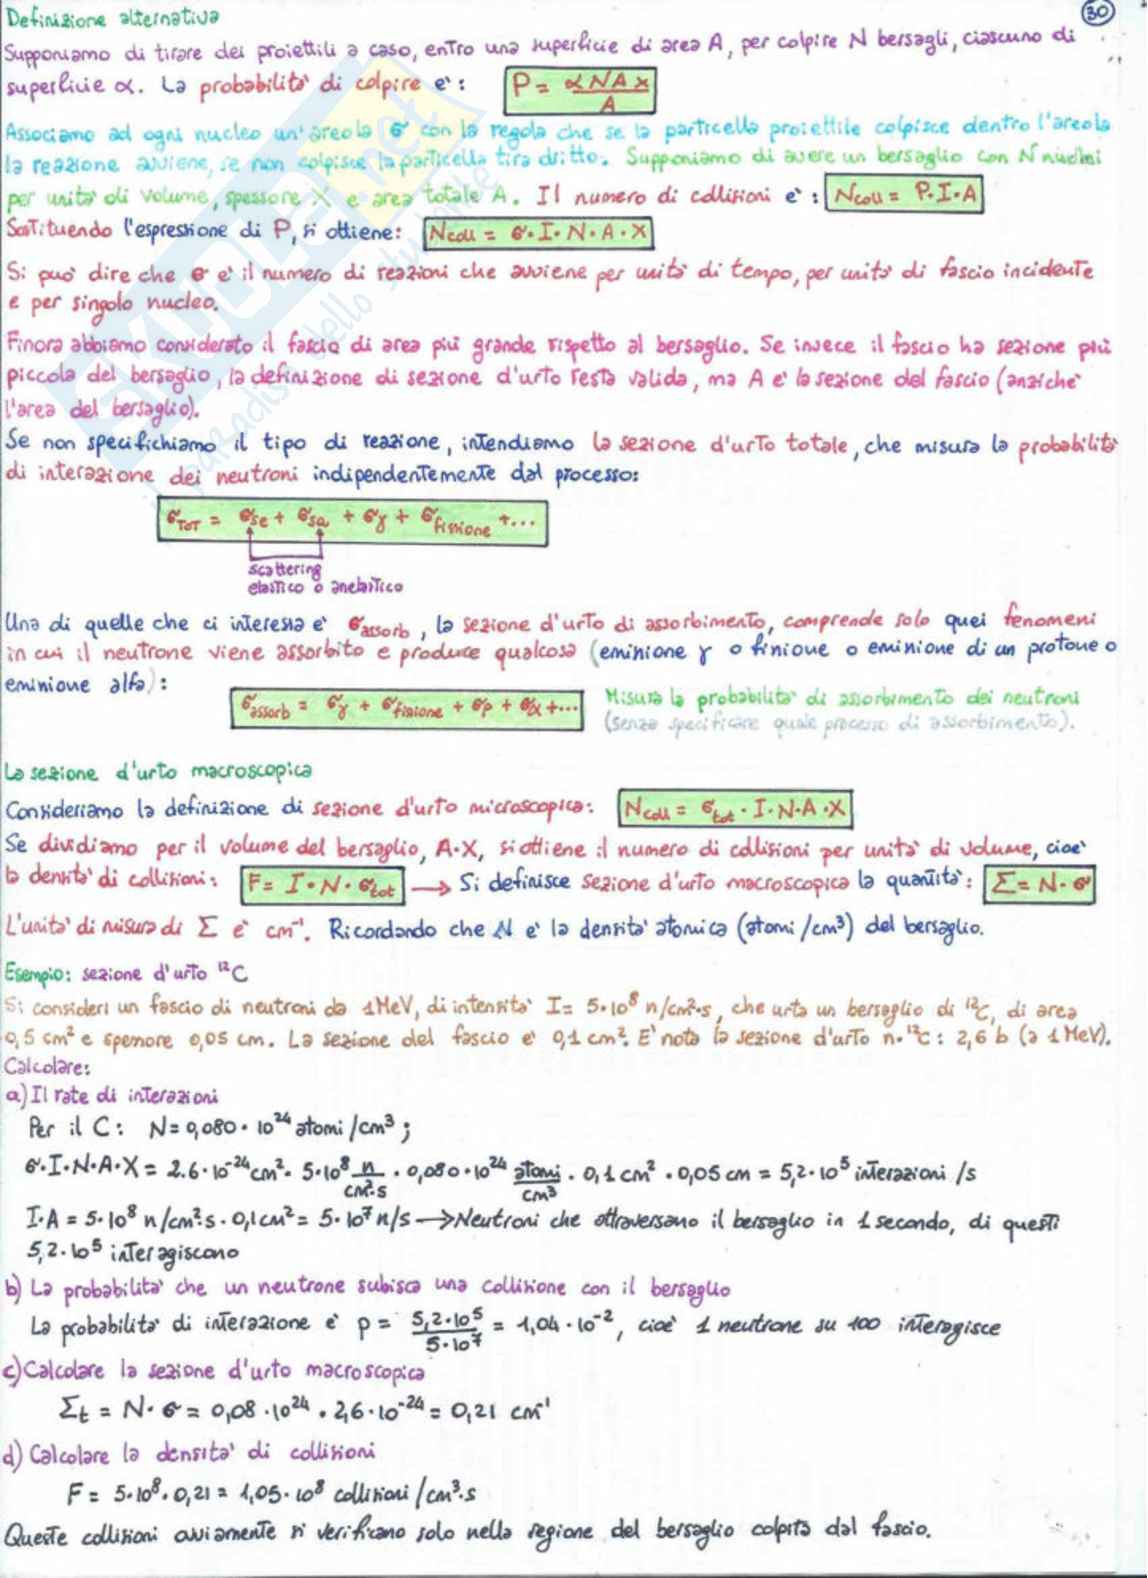 30
Definizione alternativa
Supponiamo di tirare dei proiettili a caso, entro una superficie di area A, per colpire N bersagli, ciascuno di
superficie α. La probabilità di colpire è: P = αNAx/A
Associamo ad ogni nucleo un'areola σ con la regola che se la particella proiettile colpisce dentro l'areola
la reazione avviene, se non colpisce la particella tira dritto. Supponiamo di avere un bersaglio con N nuclei
per unità di volume, spessore X e area totale A. Il numero di collisioni è: Ncoll = P·I·A
Sostituendo l'espressione di P, si ottiene: Ncoll = σ·I·N·A·X
Si può dire che σ è il numero di reazioni che avviene per unità di tempo, per unità di fascio incidente
e per singolo nucleo.
Finora abbiamo considerato il fascio di area più grande rispetto al bersaglio. Se invece il fascio ha sezione più
piccola del bersaglio, la definizione di sezione d'urto resta valida, ma A è la sezione del fascio (anziché
l'area del bersaglio).
Se non specifichiamo il tipo di reazione, intendiamo la sezione d'urto totale, che misura la probabilità
di interazione dei neutroni indipendentemente dal processo:
σTOT = σse + σsa + σγ + σfissione +...
scattering
elastico o anelastico
Una di quelle che ci interessa è σassorb, la sezione d'urto di assorbimento, comprende solo quei fenomeni
in cui il neutrone viene assorbito e produce qualcosa (emissione γ o fissione o emissione di un protone o
emissione alfa):
σassorb = σγ + σfissione + σp + σα +... Misura la probabilità di assorbimento dei neutroni
(senza specificare quale processo di assorbimento).
La sezione d'urto macroscopica
Consideriamo la definizione di sezione d'urto microscopica: Ncoll = σtot·I·N·A·X
Se dividiamo per il volume del bersaglio, A·X, si ottiene il numero di collisioni per unità di volume, cioè
la densità di collisioni: F = I·N·σtot → Si definisce sezione d'urto macroscopica la quantità: Σ = N·σ
L'unità di misura di Σ è cm⁻¹. Ricordando che N è la densità atomica (atomi/cm³) del bersaglio.
Esempio: sezione d'urto ¹²C
Si consideri un fascio di neutroni da 1MeV, di intensità I= 5·10⁸ n/cm²·s, che urta un bersaglio di ¹²C, di area
0,5 cm² e spessore 0,05 cm. La sezione del fascio è 0,1 cm². È nota la sezione d'urto n-¹²C: 2,6 b (a 1 MeV).
Calcolare:
a) Il rate di interazioni
Per il C: N=0,080·10²⁴ atomi/cm³;
σ·I·N·A·X = 2.6·10⁻²⁴cm²· 5·10⁸ n/cm²·s · 0,080·10²⁴ atomi/cm³ · 0,1 cm² · 0,05 cm = 5,2·10⁵ interazioni /s
I·A = 5·10⁸ n/cm²·s · 0,1cm² = 5·10⁷ n/s → Neutroni che attraversano il bersaglio in 1 secondo, di questi
5,2·10⁵ interagiscono
b) La probabilità che un neutrone subisca una collisione con il bersaglio
La probabilità di interazione è p = 5,2·10⁵/5·10⁷ = 1,04·10⁻², cioè 1 neutrone su 100 interagisce
c) Calcolare la sezione d'urto macroscopica
Σt = N·σ = 0,08·10²⁴ · 2,6·10⁻²⁴ = 0,21 cm⁻¹
d) Calcolare la densità di collisioni
F = 5·10⁸·0,21 = 1,05·10⁸ collisioni/cm³·s
Queste collisioni ovviamente si verificano solo nella regione del bersaglio colpita dal fascio.